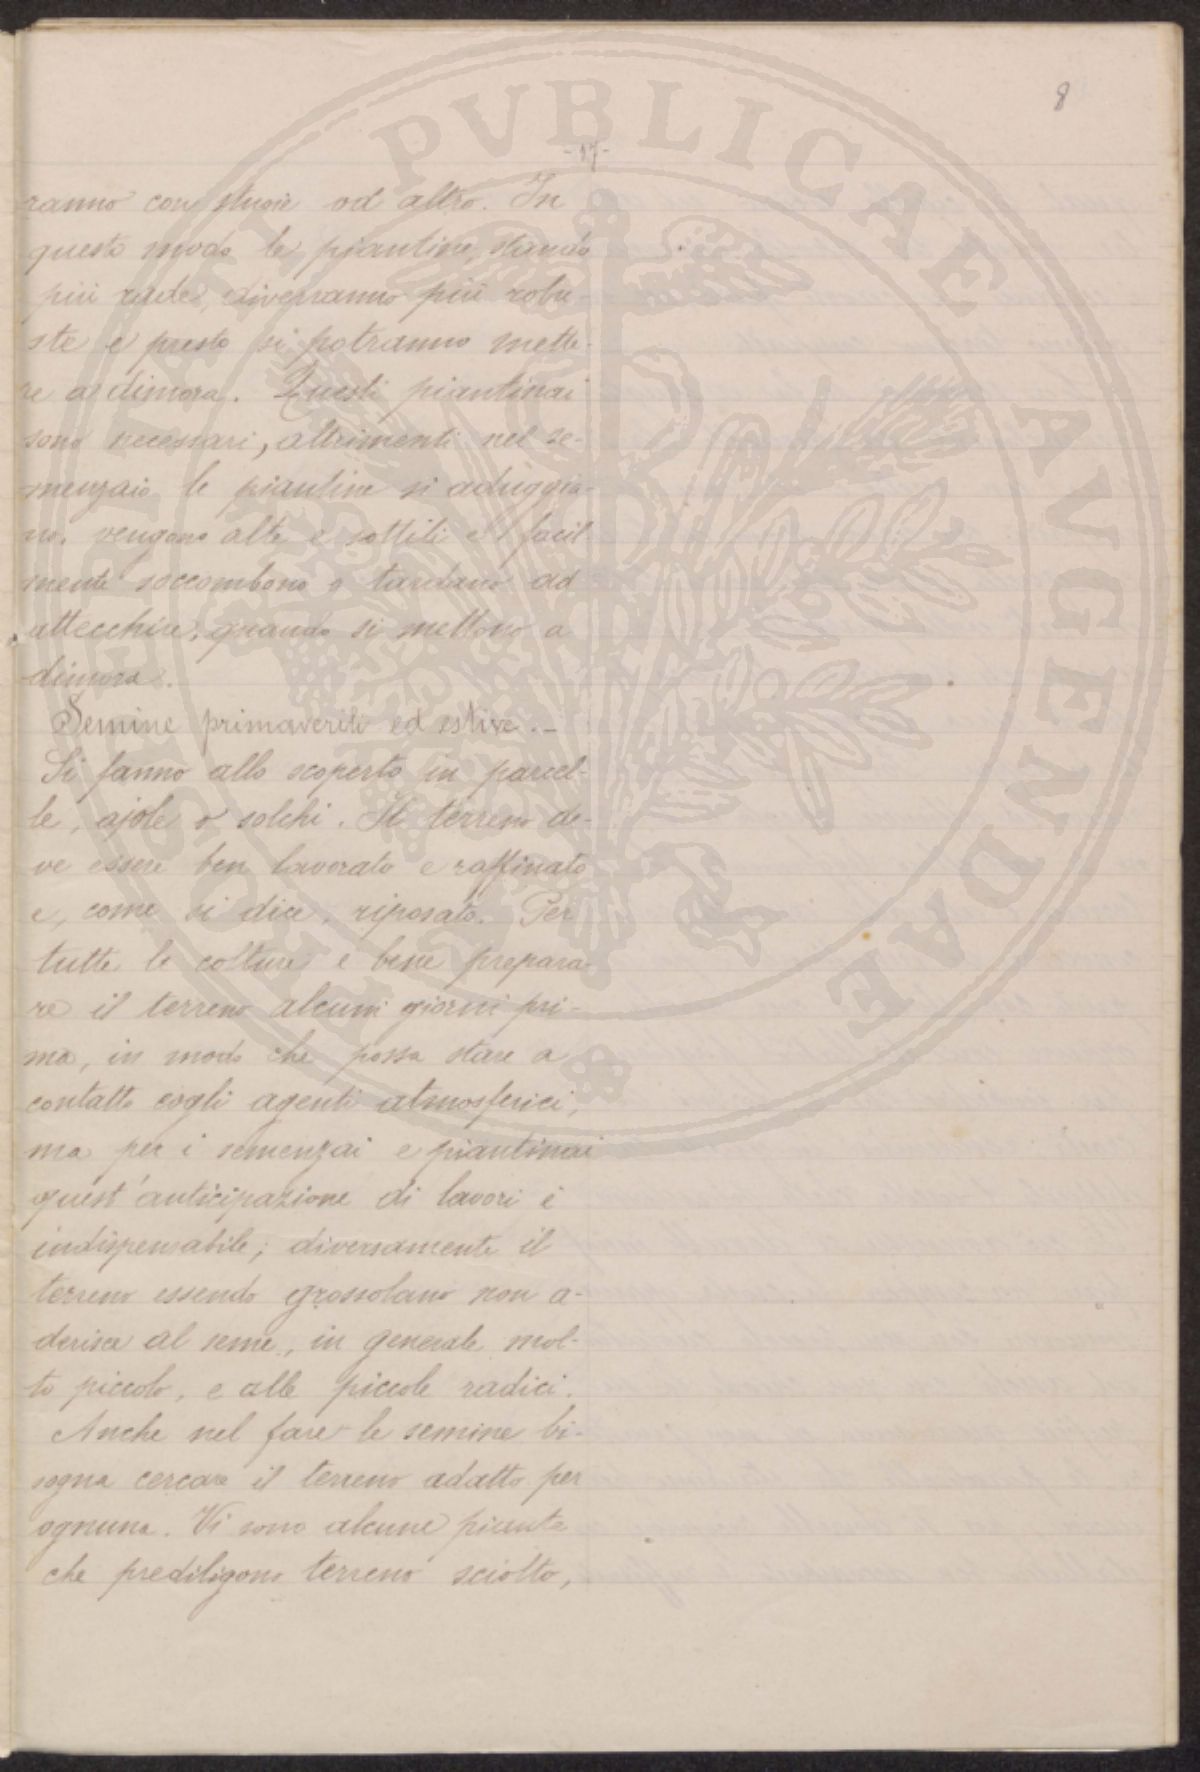 8
-17-
ranno con stuoie od altro. In
questo modo le piantine, stando
più rade, diverranno più robu-
ste e presto si potranno mette-
re a dimora. Questi piantinai
sono necessari, altrimenti nel se-
menzaio le piantine si aduggia-
no, vengono alte e sottili e facil-
mente soccombono o tardano ad
attecchire, quando si mettono a
dimora.
Semine primaverili ed estive.-
Si fanno allo scoperto in parcel-
le, ajole o solchi. Il terreno de-
ve essere ben lavorato e raffinato
e, come si dice, riposato. Per
tutte le colture è bene prepara-
re il terreno alcuni giorni pri-
ma, in modo che possa stare a
contatto cogli agenti atmosferici,
ma per i semenzai e piantinai
quest'anticipazione di lavori è
indispensabile; diversamente il
terreno essendo grossolano non a-
derisce al seme, in generale mol-
to piccolo, e alle piccole radici.
Anche nel fare le semine bi-
sogna cercare il terreno adatto per
ognuna. Vi sono alcune piante
che prediligono terreno sciolto,
PUBLICAE AUGENDAE